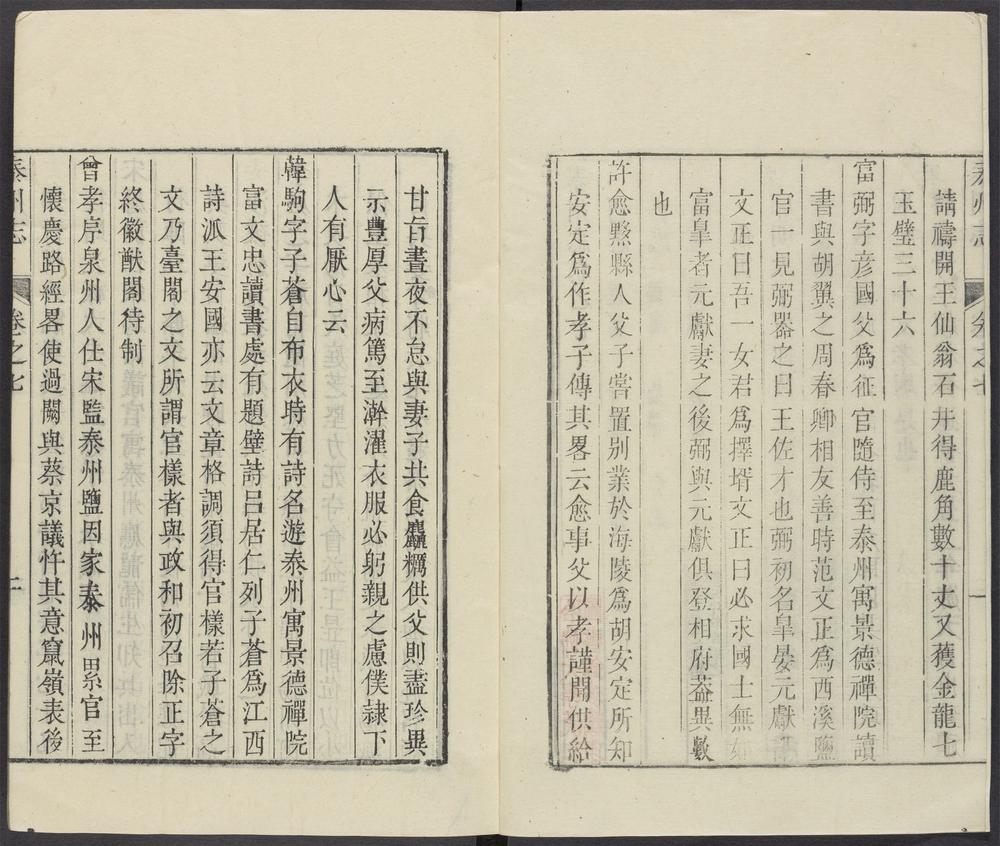 泰州志
卷之七
一
請禱開王仙翁石井得鹿角數十丈又獲金龍七
玉璧三十六
富弼字彥國父爲征官隨侍至泰州寓景德禪院讀
書與胡翼之周春卿相友善時范文正爲西溪鹽
官一見弼器之曰王佐才也弼初名臯晏元獻
文正曰吾一女君爲擇壻文正曰必求國士無如
富臯者元獻妻之後弼與元獻俱登相府葢異數
也
許愈黟縣人父子嘗置别業於海陵爲胡安定所知
安定爲作孝子傳其畧云愈事父以孝謹聞供給
甘旨晝夜不怠與妻子共食麤糲供父則盡珍異
示豐厚父病篤至澣濯衣服必躬親之慮僕隸下
人有厭心云
韓駒字子蒼自布衣時有詩名遊泰州寓景德禪院
富文忠讀書處有題壁詩吕居仁列子蒼爲江西
詩派王安國亦云文章格調須得官樣若子蒼之
文乃臺閣之文所謂官樣者與政和初召除正字
終徽猷閣待制
曾孝序泉州人仕宋監泰州鹽因家泰州累官至
懷慶路經畧使過闕與蔡京議忤其意竄嶺表後
泰州志
卷之七
二